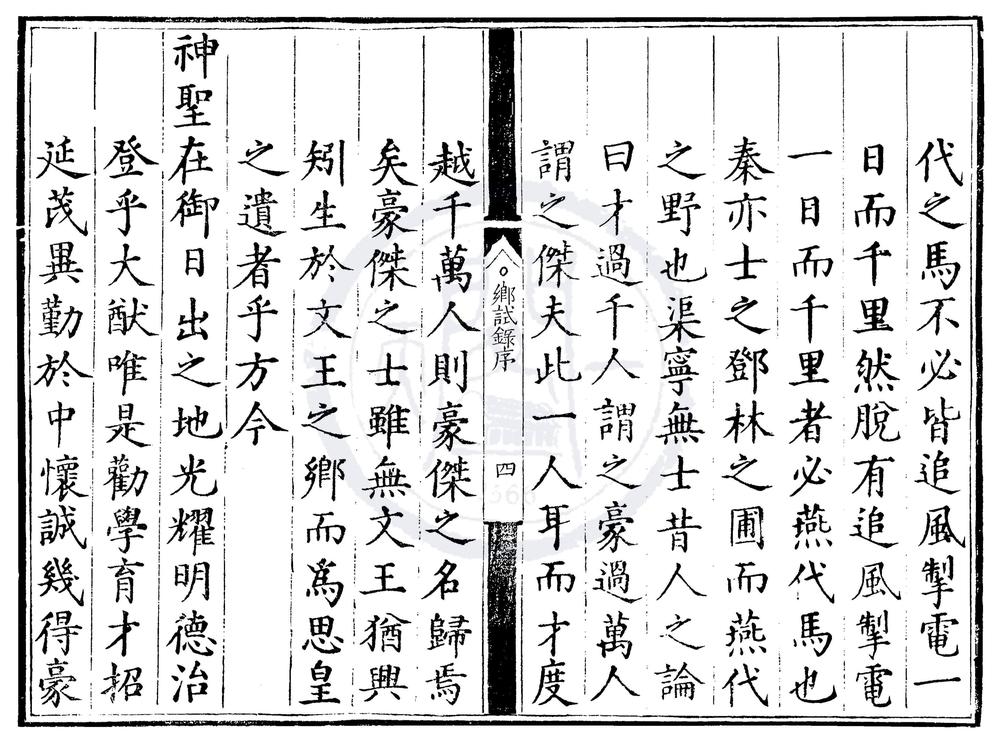 代之馬不必皆追風掣電一
日而千里然脫有追風掣電
一日而千里者必燕代馬也
秦亦士之鄧林之圃而燕代
之野也渠寧無士昔人之論
曰才過千人謂之豪過萬人
謂之傑夫此一人耳而才度
鄉試錄序
四
越千萬人則豪傑之名歸焉
矣豪傑之士雖無文王猶興
矧生於文王之鄉而為思皇
之遺者乎方今
神聖在御日出之地光耀明德治
登乎大猷唯是勸學育才招
延茂異勤於中懷誠幾得豪